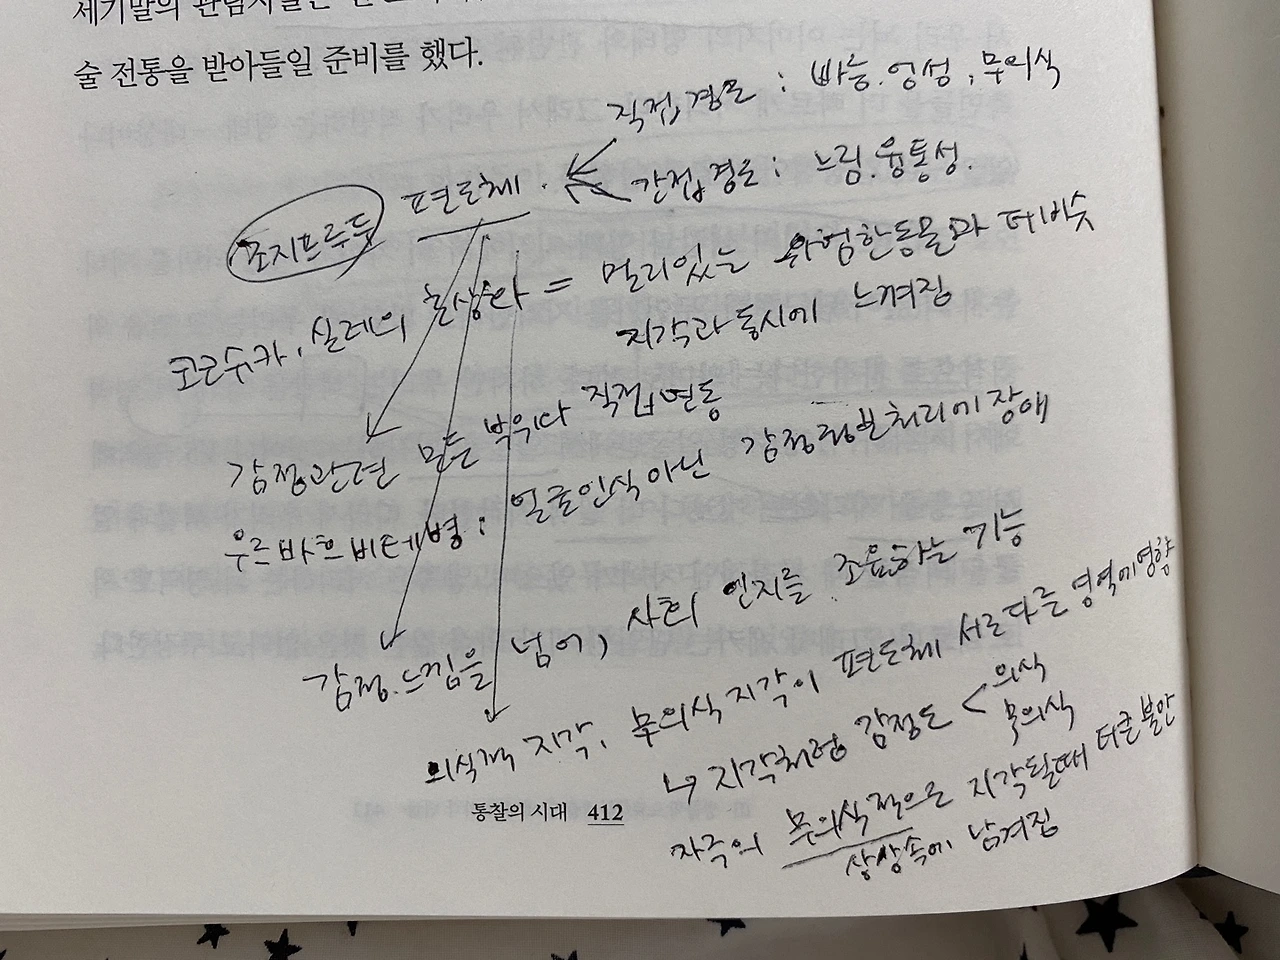 세기말의 관람자들은
술 전통을 받아들일 준비를 했다.
직접경로 : 빠름. 엉성, 무의식
조지프루두 편도체.
간접경로 : 느림. 융통성.
코코슈카, 실레의 초상화 = 멀리있는 위험한동물과 더 비슷
지각과 동시에 느껴짐
감정관련 모든 부위다 직접연동
우르바흐비테병 : 얼굴인식아닌 감정정보처리에 장애
감정.느낌을 넘어, 사회 인지를 조율하는 기능
의식적 지각, 무의식지각이 편도체 서로다른 영역에영향
↳ 지각처럼 감정도 < 의식
무의식
자극의 무의식적으로 지각될때 더큰불안
상상속에 남겨짐
통찰의 시대 412